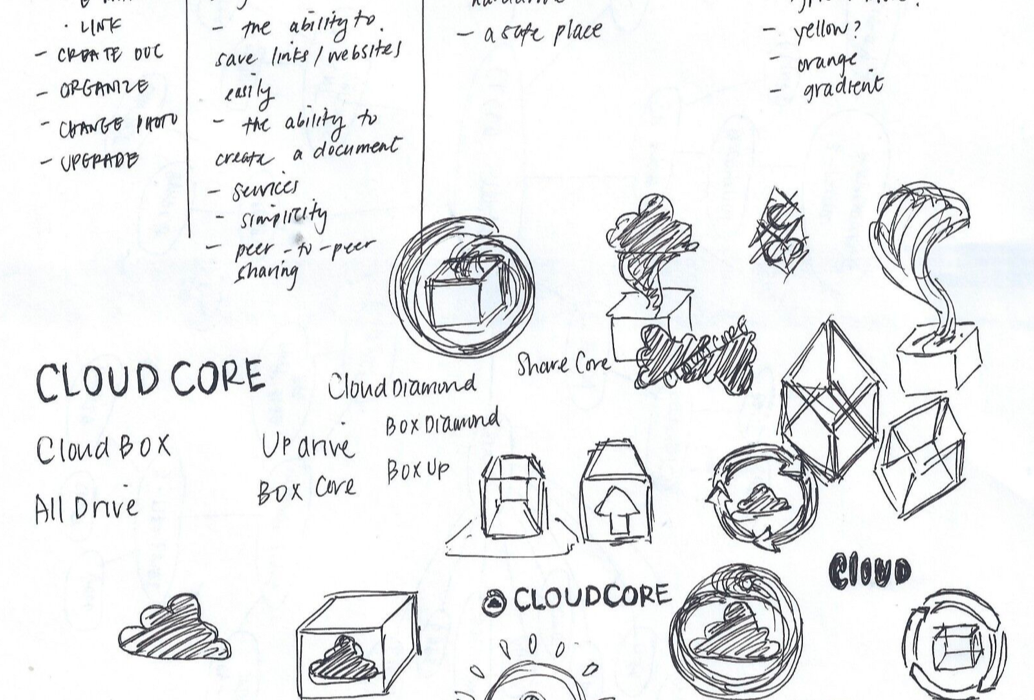 · LINK
- CREATE DOC
- ORGANIZE
- CHANGE PHOTO
- UPGRADE
- the ability to
save links/websites
easily
- the ability to
create a document
- services
- simplicity
- peer-to-peer
sharing
- a safe place
- yellow?
- orange
- gradient
CLOUD CORE
Cloud BOX
All Drive
Cloud Diamond
Up drive
Box Diamond
BOX Core
Box Up
Share Core
CLOUD
CLOUDCORE